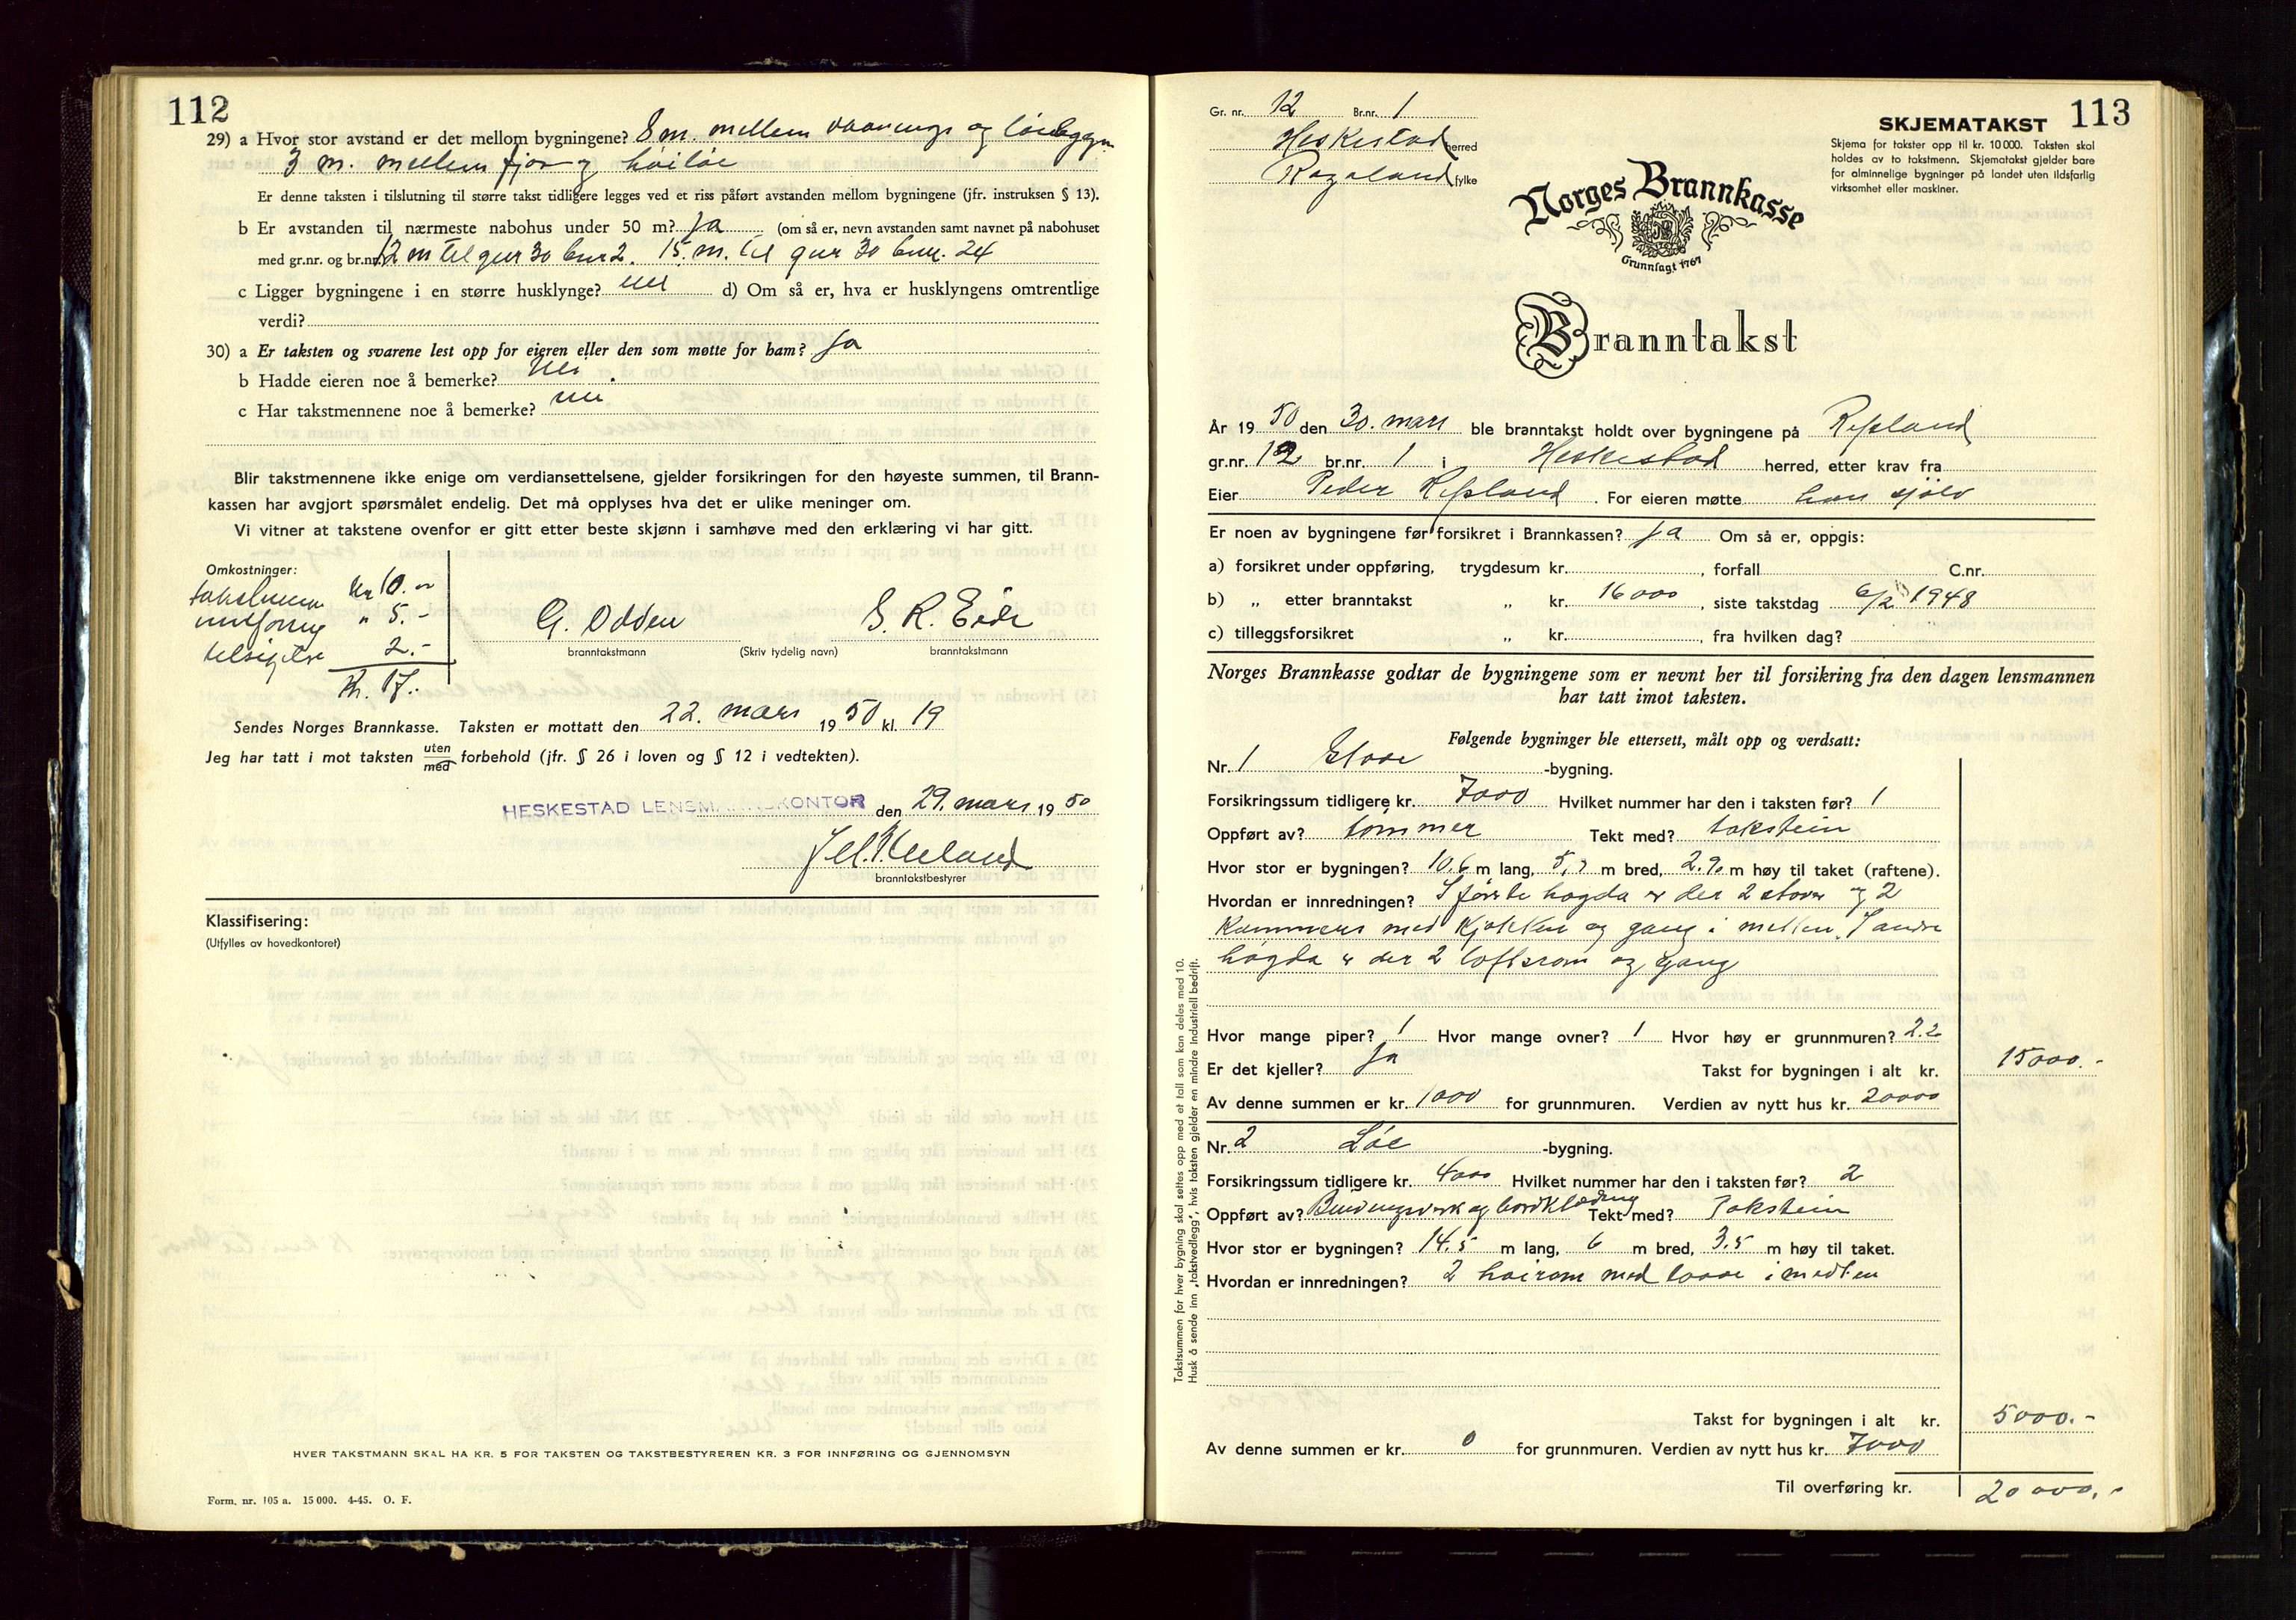 112
29) a Hvor stor avstand er det mellom bygningene? 8 m. mellem vaanings og löebygn.
3 m. mellem fjös og höilöe
Er denne taksten i tilslutning til større takst tidligere legges ved et riss påført avstanden mellom bygningene (jfr. instruksen § 13).
b Er avstanden til nærmeste nabohus under 50 m? Ja (om så er, nevn avstanden samt navnet på nabohuset
med gr.nr. og br.nr. 12 m til gnr 30 bnr 2. 15. m. til gnr 30 bnr. 24
c Ligger bygningene i en større husklynge? nei d) Om så er, hva er husklyngens omtrentlige
verdi?
30) a Er taksten og svarene lest opp for eieren eller den som møtte for ham? Ja
b Hadde eieren noe å bemerke? Nei.
c Har takstmennene noe å bemerke? nei.
Blir takstmennene ikke enige om verdiansettelsene, gjelder forsikringen for den høyeste summen, til Brann-
kassen har avgjort spørsmålet endelig. Det må opplyses hva det er ulike meninger om.
Vi vitner at takstene ovenfor er gitt etter beste skjønn i samhøve med den erklæring vi har gitt.
Omkostninger:
takstmenn Kr 10.-
innföring " 5.-
tilsigelse 2.-
Kr. 17.-
G. Odden S. R. Eide
branntakstmann (Skriv tydelig navn) branntakstmann
Sendes Norges Brannkasse. Taksten er mottatt den 22. mars 1950 kl. 19
Jeg har tatt i mot taksten uten/med forbehold (jfr. § 26 i loven og § 12 i vedtekten).
HESKESTAD LENSMANNSKONTOR den 29. mars 1950
branntakstbestyrer
Klassifisering:
(Utfylles av hovedkontoret)
HVER TAKSTMANN SKAL HA KR. 5 FOR TAKSTEN OG TAKSTBESTYREREN KR. 3 FOR INNFØRING OG GJENNOMSYN
Form. nr. 105 a. 15 000. 4-45. O. F.
113
Gr. nr. 12 Br.nr. 1
Heskestad herred
Rogaland fylke
SKJEMATAKST
Skjema for takster opp til kr. 10 000. Taksten skal
holdes av to takstmenn. Skjematakst gjelder bare
for alminnelige bygninger på landet uten ildsfarlig
virksomhet eller maskiner.
Norges Brannkasse
Grunnlagt 1767
Branntakst
År 1950 den 30. mars ble branntakst holdt over bygningene på Refsland
gr.nr. 12 br.nr. 1 i Heskestad herred, etter krav fra
Eier Peder Refsland. For eieren møtte han sjölv
Er noen av bygningene før forsikret i Brannkassen? Ja Om så er, oppgis:
a) forsikret under oppføring, trygdesum kr. , forfall C.nr.
b) „ etter branntakst „ kr. 16000, siste takstdag 6/2 1948
c) tilleggsforsikret „ kr. , fra hvilken dag?
Norges Brannkasse godtar de bygningene som er nevnt her til forsikring fra den dagen lensmannen
har tatt imot taksten.
Følgende bygninger ble ettersett, målt opp og verdsatt:
Nr. 1 Stove -bygning.
Forsikringssum tidligere kr. 7000 Hvilket nummer har den i taksten før? 1
Oppført av? tömmer Tekt med? takstein
Hvor stor er bygningen? 10.6 m lang, 5,7 m bred, 2.90 m høy til taket (raftene).
Hvordan er innredningen? I förste högda er der 2 stover og 2
kammers med kjökken og gang i mellen. I andre
högda er der 2 loftsrom og gang
Hvor mange piper? 1 Hvor mange ovner? 1 Hvor høy er grunnmuren? 2.2
Er det kjeller? Ja Takst for bygningen i alt kr. 15000.-
Av denne summen er kr. 1000 for grunnmuren. Verdien av nytt hus kr. 20000
Nr. 2 Löe -bygning.
Forsikringssum tidligere kr. 4000 Hvilket nummer har den i taksten før? 2
Oppført av? Bindingsverk og bordklædning Tekt med? Takstein
Hvor stor er bygningen? 14.5 m lang, 6 m bred, 3.5 m høy til taket.
Hvordan er innredningen? 2 höirom med laave i mellen
Takst for bygningen i alt kr. 5000.-
Av denne summen er kr. 0 for grunnmuren. Verdien av nytt hus kr. 7000
Til overføring kr. 20000.-
Takstsummen for hver bygning skal settes opp med et tall som kan deles med 10.
Husk å sende inn „takstvedlegg", hvis taksten gjelder en mindre industriell bedrift.